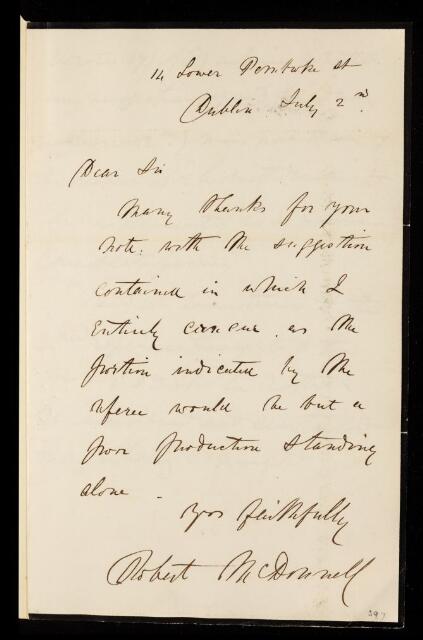 14 Lower Pembroke st
Dublin July 2nd
Dear Sir
Many thanks for your
note. with the suggestion
contained in which I
entirely concur. as the
portion indicated by the
referee would be but a
poor production standing
alone.
yrs faithfully
Robert McDonnell
397